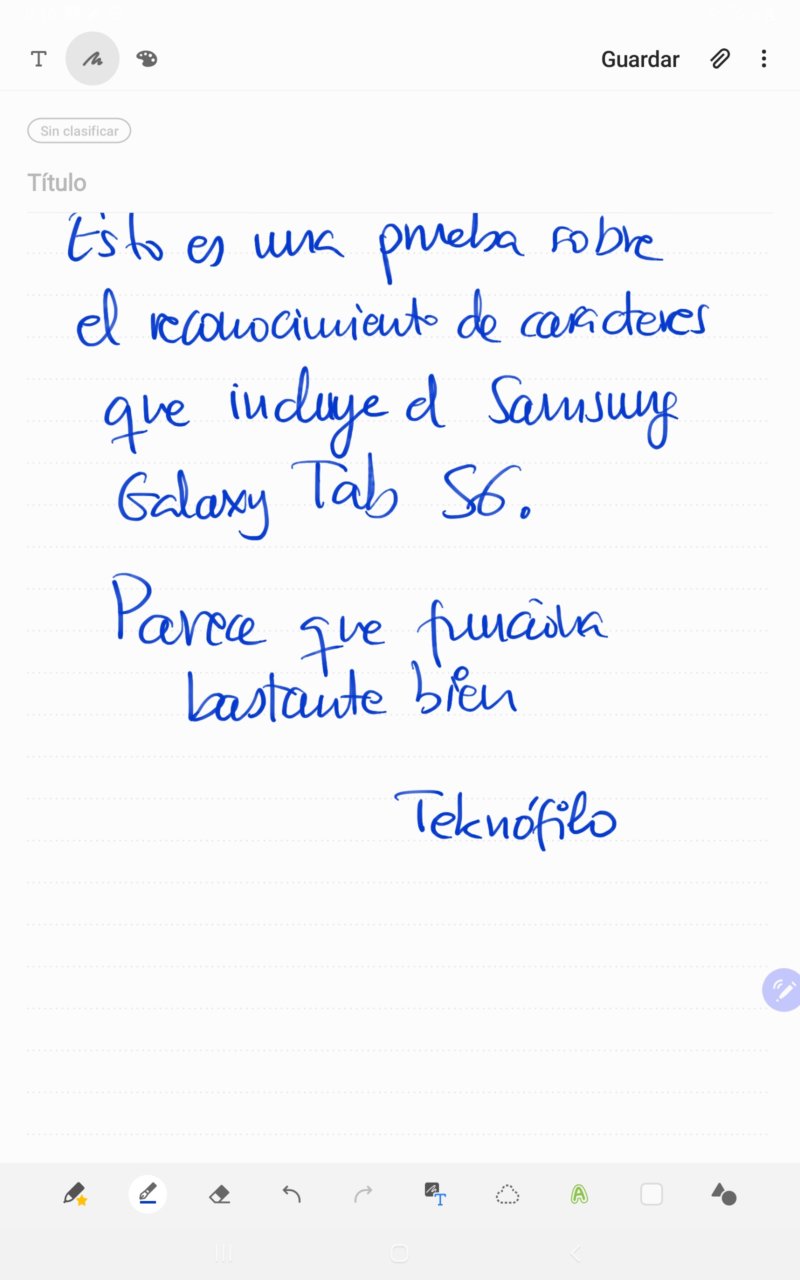 Guardar
Sin clasificar
Título
Esto es una prueba sobre
el reconocimiento de caracteres
que incluye el Samsung
Galaxy Tab S6.
Parece que funciona
bastante bien
Teknófilo